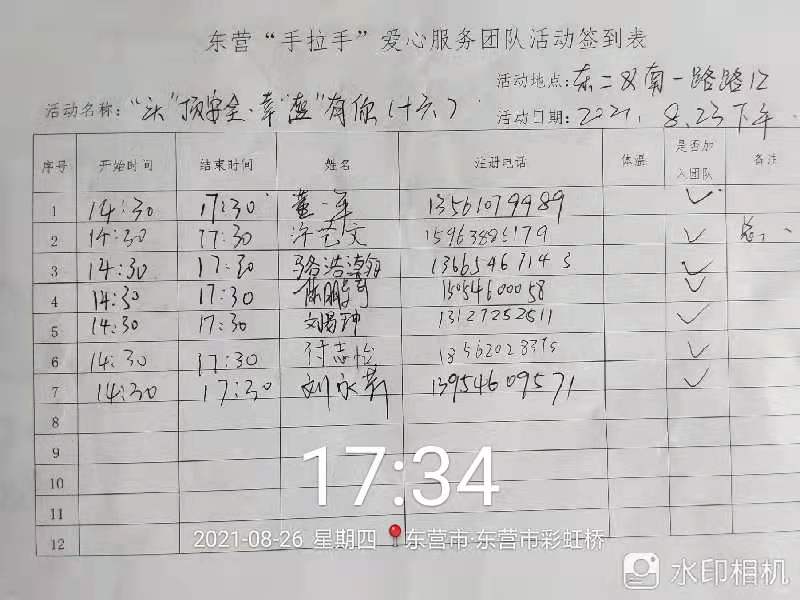 东营“手拉手”爱心服务团队活动签到表
活动地点：东二路南一路路口
活动名称：“头”顶安全·幸“盔”有你（十六）
活动日期：2021. 8.23下午
序号 开始时间 结束时间 姓名 注册电话 体温 是否加入团队 备注
1 14:30 17:30 13561079989 ✓
2 14:30 17:30 许艺文 ✓
3 14:30 17:30 骆浩瀚 ✓
4 14:30 17:30 15054600058 ✓
5 14:30 17:30 13127252511 ✓
6 14:30 17:30 ✓
7 14:30 17:30 刘永芹 13954609571 ✓
8
9
10
11
12
17:34
2021-08-26 星期四 东营市·东营市彩虹桥
水印相机